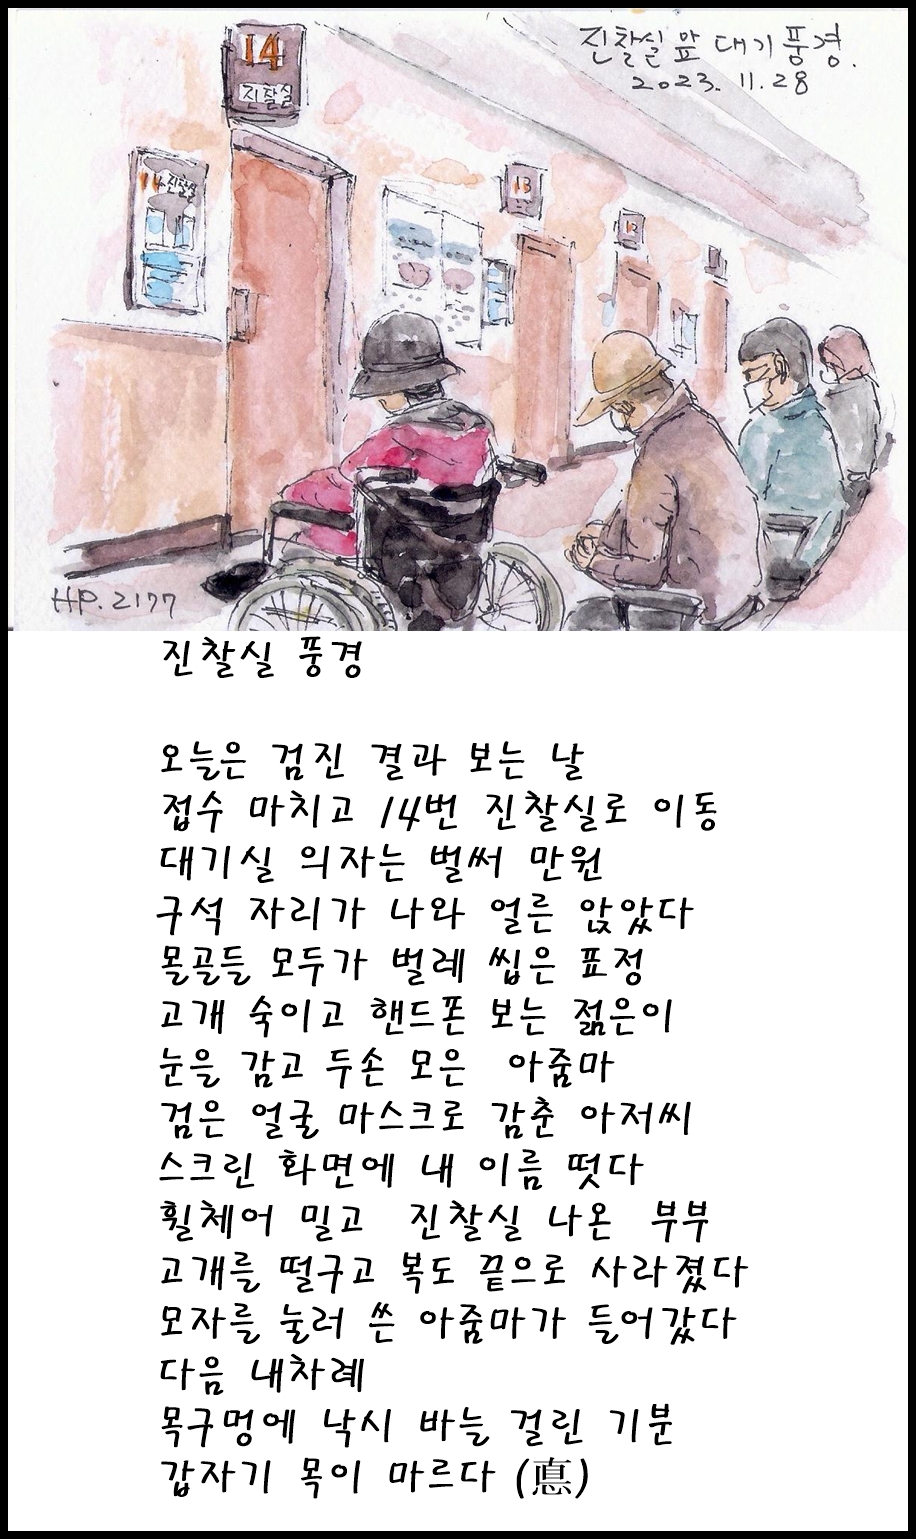 진찰실 앞 대기풍경.
2023. 11. 28
14
진찰실
14 진찰실
13
12
HP. 2177
진찰실 풍경
오늘은 검진 결과 보는 날
접수 마치고 14번 진찰실로 이동
대기실 의자는 벌써 만원
구석 자리가 나와 얼른 앉았다
몰골들 모두가 벌레 씹은 표정
고개 숙이고 핸드폰 보는 젊은이
눈을 감고 두손 모은 아줌마
검은 얼굴 마스크로 감춘 아저씨
스크린 화면에 내 이름 떳다
휠체어 밀고 진찰실 나온 부부
고개를 떨구고 복도 끝으로 사라졌다
모자를 눌러 쓴 아줌마가 들어갔다
다음 내차례
목구멍에 낙시 바늘 걸린 기분
갑자기 목이 마르다 (悳)